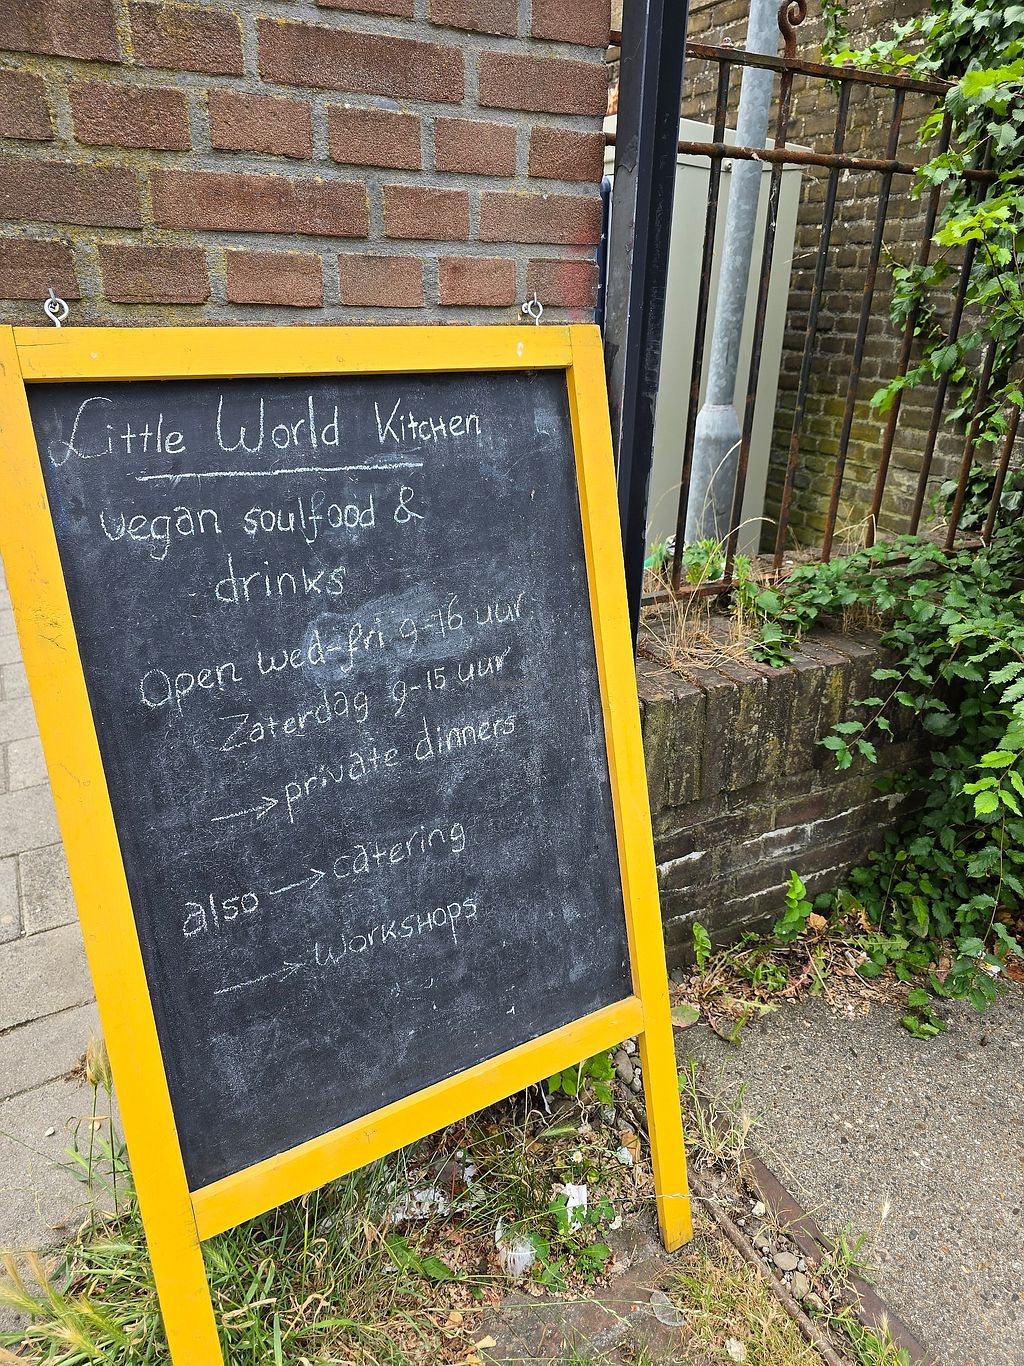 Little World Kitchen
vegan soulfood &
drinks
Open wed-fri 9-16 uur
Zaterdag 9-15 uur
→ private dinners
also → catering
→ Workshops